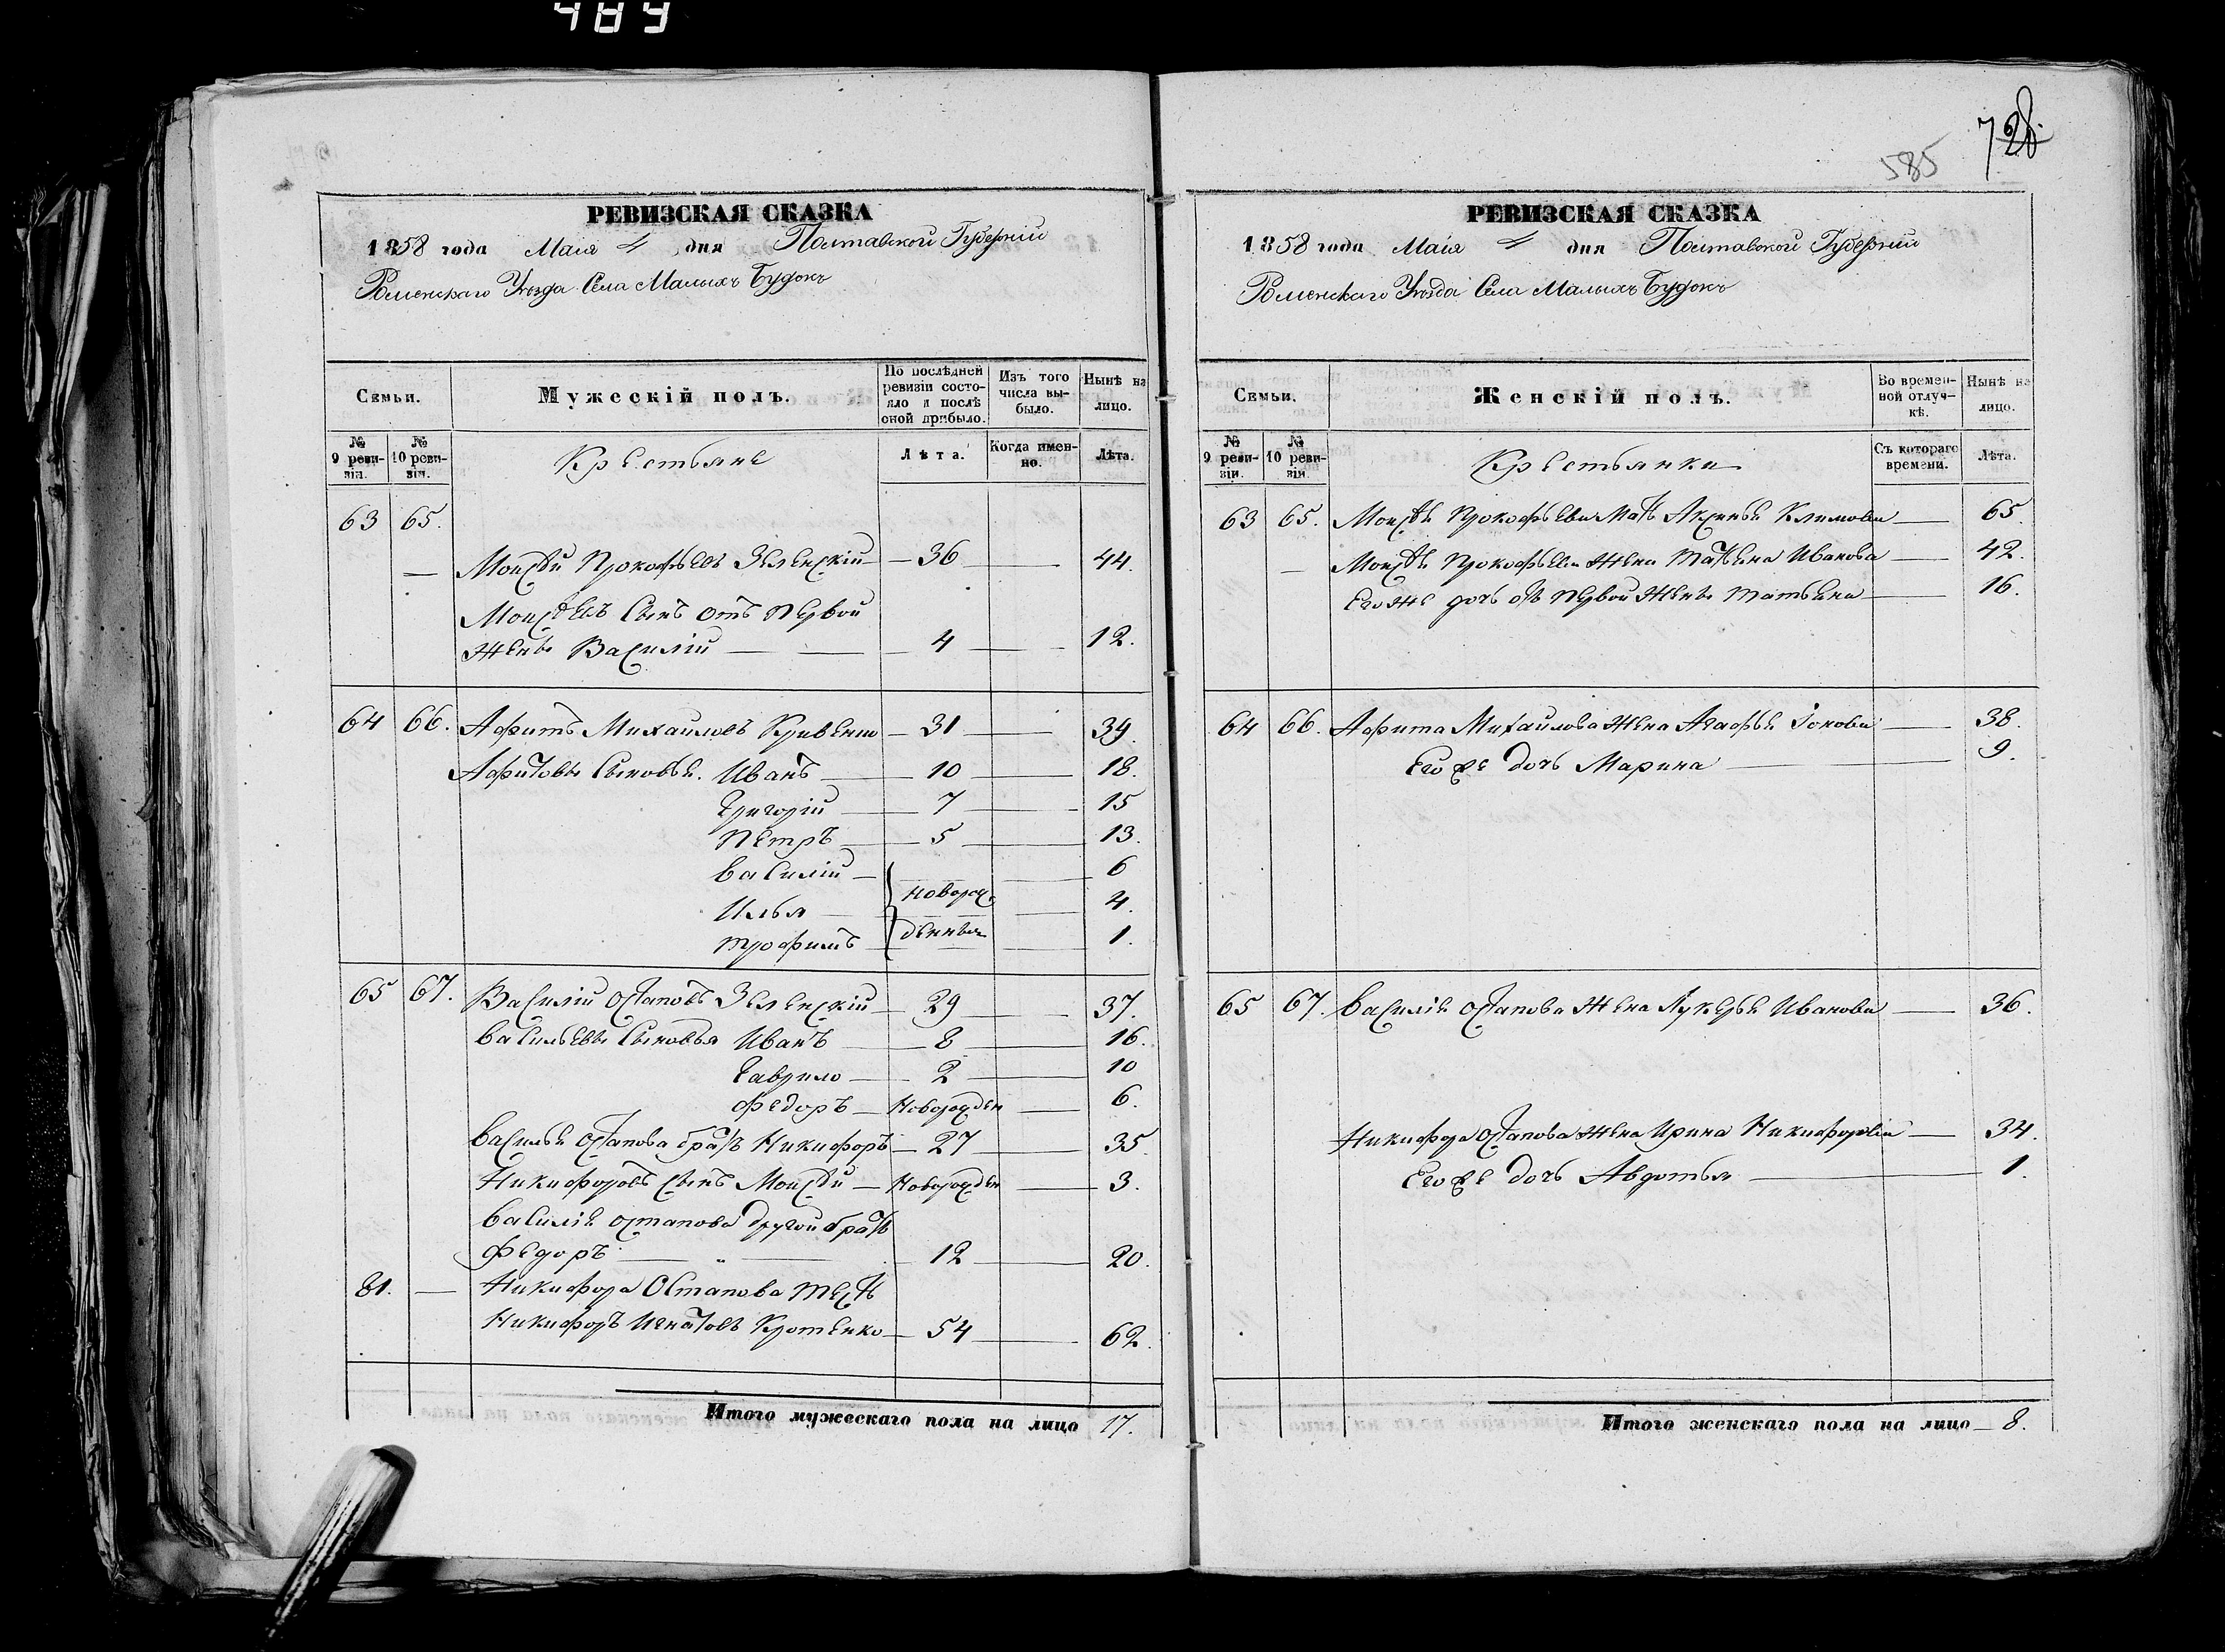 489
РЕВИЗСКАЯ СКАЗКА
1858 года Маія 4 дня Полтавской Губерніи
Роменскаго Уѣзда Села Малыхъ Будокъ
Семьи.
Мужескій полъ.
По послѣдней ревизіи состояло и послѣ оной прибыло.
Изъ того числа выбыло.
Нынѣ на лицо.
№ 9 ревизіи.
№ 10 ревизіи.
Крестьяне
Лѣта.
Когда именно.
Лѣта.
63 65.
— Моисѣй Прокофьевъ Зеленскій — 36 — 44.
Моисѣевъ Сынъ отъ Первой
жены Василій — 4 — 12.
64 66. Афитъ Михайловъ Кривенко — 31 — 39.
Афитовы Сыновья. Иванъ — 10 — 18.
Григорій — 7 — 15
Петръ — 5 — 13.
Василій — 6
новорож
Илья — 4.
денные
Трофимъ — 1.
65 67. Василій Остаповъ Зеленскій — 29 — 37.
Васильевы Сыновья Иванъ — 8 — 16.
Гаврило — 2 — 10
Федоръ — Новорожден — 6.
Василія Остапова братъ Никифоръ — 27 — 35.
Никифоровъ сынъ Моисѣй — Новорожден — 3.
Василія Остапова другой братъ
Федоръ — „ — 12 — 20.
81. — Никифора Остапова тесть
Никифоръ Игнатовъ Кротенко — 54 — 62.
Итого мужескаго пола на лицо 17.
728.
585
РЕВИЗСКАЯ СКАЗКА
1858 года Маія 4 дня Полтавской Губерніи
Роменскаго Уѣзда Села Малыхъ Будокъ
Семьи.
Женскій полъ.
Во временной отлучкѣ.
Нынѣ на лицо.
№ 9 ревизіи.
№ 10 ревизіи.
Крестьянки
Съ котораго времени.
Лѣта.
63 65. Моисѣя Прокофьева Мать Аксинья Климова — 65.
— Моисѣя Прокофьева Жена Татьяна Иванова — 42.
Его же дочь отъ первой Жены Татьяна — 16.
64 66. Афита Михайлова Жена Агафья Іокова — 38.
Его же дочь Марина — 9.
65 67. Василія Остапова Жена Лукерья Иванова — 36.
Никифора Остапова Жена Ирина Никифорова — 34.
Его же дочь Авдотья — 1.
Итого женскаго пола на лицо — 8.